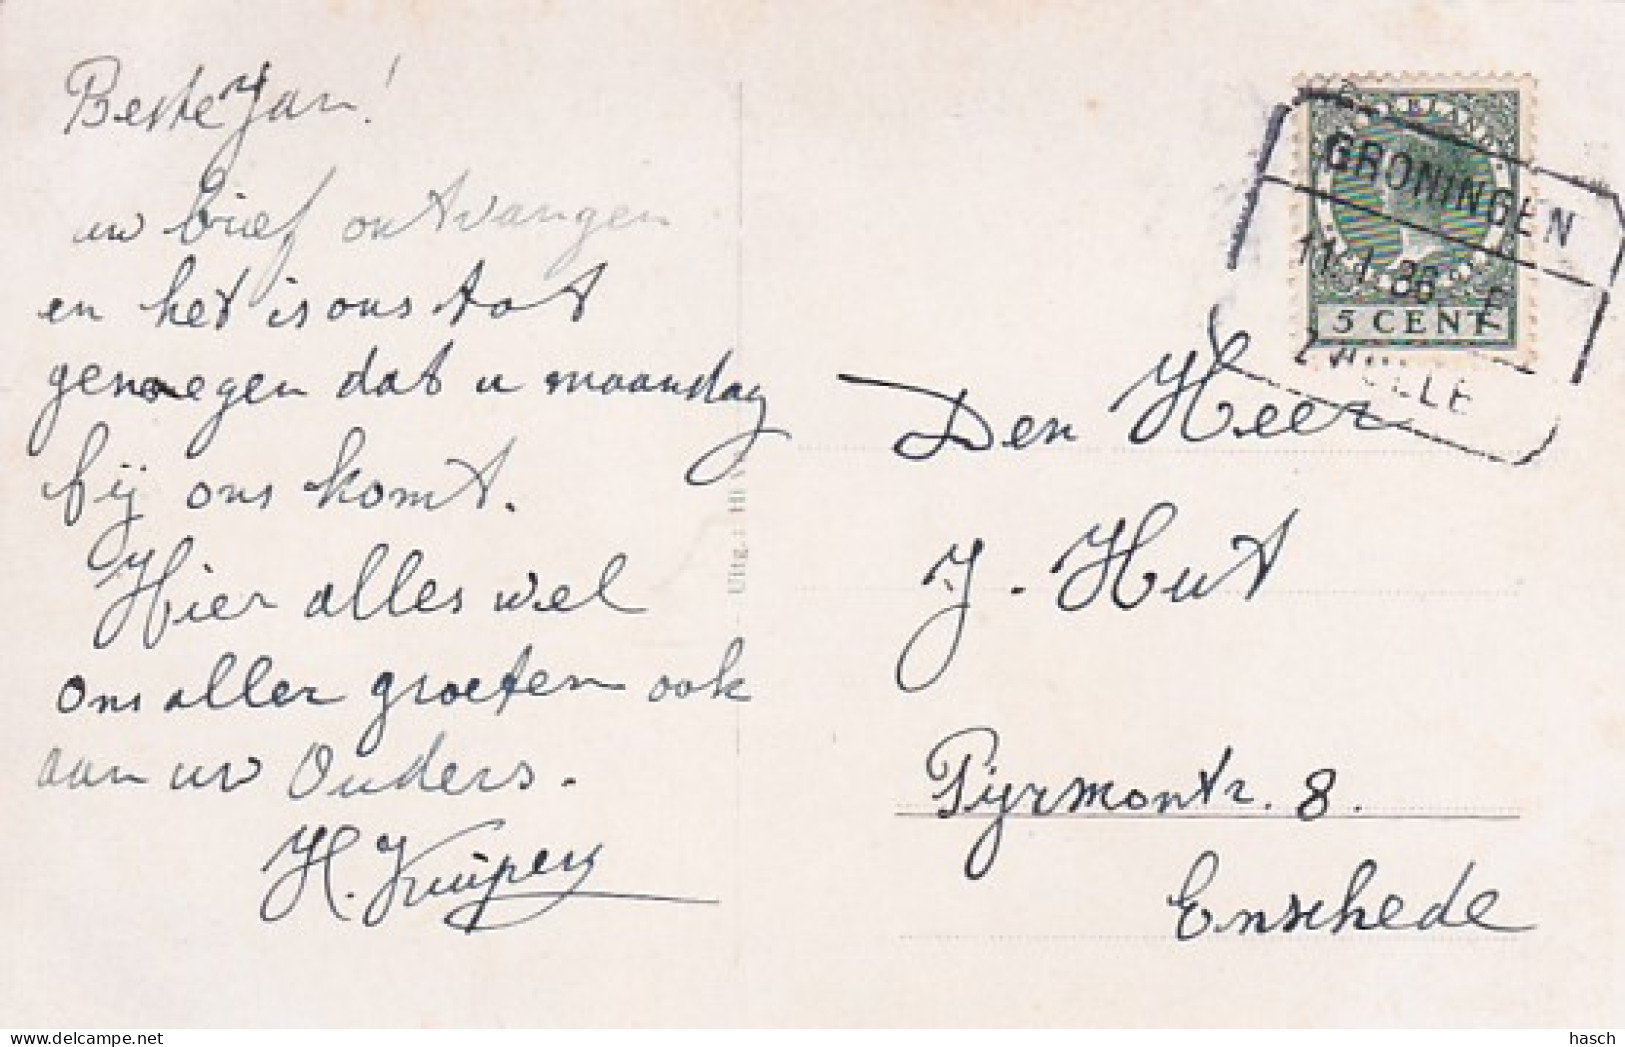 Beste Jan!
uw brief ontvangen
en het is ons tot
genoegen dat u maandag
bij ons komt.
Hier alles wel
Ons aller groeten ook
aan uw Ouders.
H. Kuipers
Uitg.:
GRONINGEN
11.1.36 E
ZWOLLE
5 CENT
Den Heer
J. Hut
Pyrmontr. 8.
Enschede
© delcampe.net
hasch